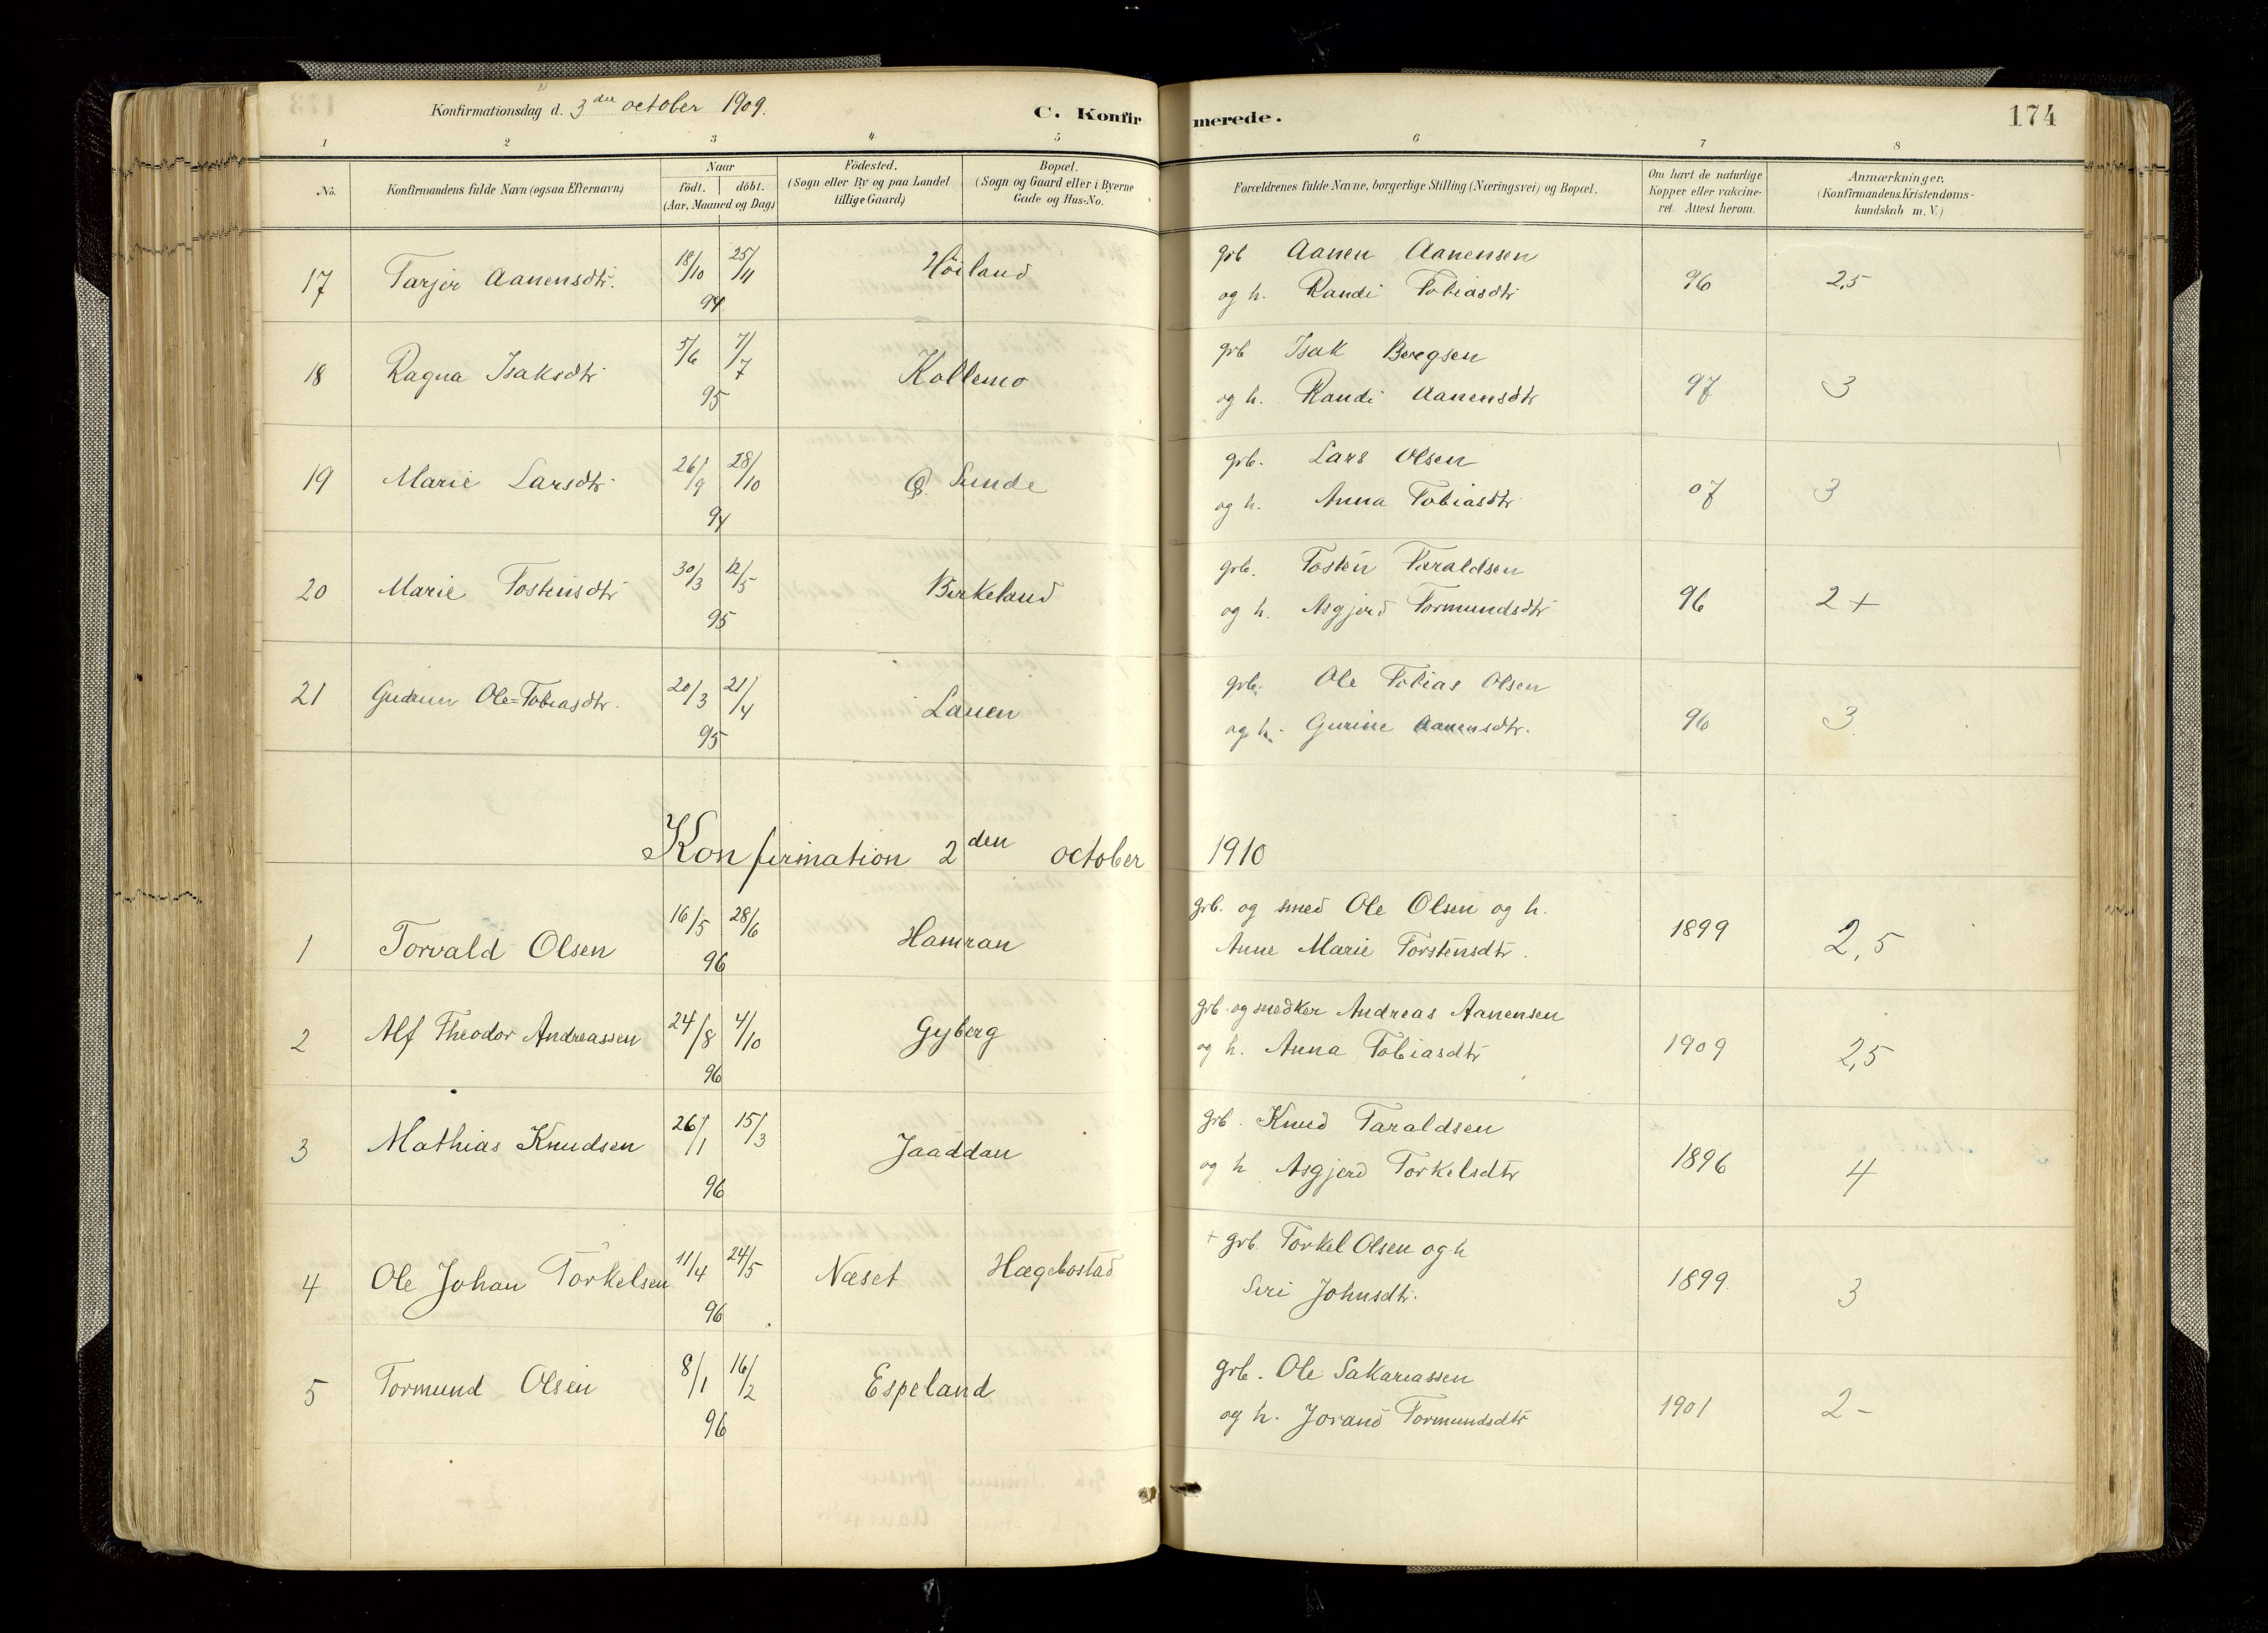 Konfirmationsdag d. 3die october 1909.
C. Konfirmerede.
174
1 2 3 4 5 6 7 8
No.
Konfirmandens fulde Navn (ogsaa Efternavn)
Naar
födt. döbt.
(Aar, Maaned og Dag)
Födested.
(Sogn eller By og paa Landet
tillige Gaard)
Bopæl.
(Sogn og Gaard eller i Byerne
Gade og Hus-No.
Forældrenes fulde Navne, borgerlige Stilling (Næringsvei) og Bopæl.
Om havt de naturlige
Kopper eller vakcine-
ret. Attest herom.
Anmærkninger,
(Konfirmandens Kristendoms-
kundskab m. V.)
17 Tarjer Aanensdtr. 18/10 25/11 94 Höiland grb Aanen Aanensen 96 2,5
og h. Randi Tobiasdtr
18 Ragna Isaksdtr 5/6 7/7 95 Kollemo grb Isak Beregsen 97 3
og h. Randi Aanensdtr
19 Marie Larsdtr 26/9 28/10 94 Ø. Sunde grb. Lars Olsen 07 3
og h. Anna Tobiasdtr
20 Marie Tostensdtr 30/3 12/5 95 Birkeland grb. Tosten Taraldsen 96 2+
og h. Asgjerd Tormundsdtr
21 Gudrun Ole=Tobiasdtr. 20/3 21/4 95 Lauen grb. Ole Tobias Olsen 96 3
og h. Gurine Aanensdtr.
Konfirmation 2den october 1910
1 Torvald Olsen 16/5 28/6 96 Hamran grb. og smed Ole Olsen og h. 1899 2,5
Anne Marie Torstensdtr.
2 Alf Theodor Andreassen 24/8 4/10 96 Gyberg grb. og snedker Andreas Aanensen 1909 2,5
og h. Anna Tobiasdtr
3 Mathias Knudsen 26/1 15/3 96 Jaaddan grb. Knud Taraldsen 1896 4
og h Asgjerd Torkelsdtr
4 Ole Johan Torkelsen 11/4 24/5 96 Næset Hægebostad + grb. Torkel Olsen og h 1899 3
Siri Johnsdtr.
5 Tormund Olsen 8/1 16/2 96 Espeland grb. Ole Sakariassen 1901 2-
og h. Jorand Tormundsdtr